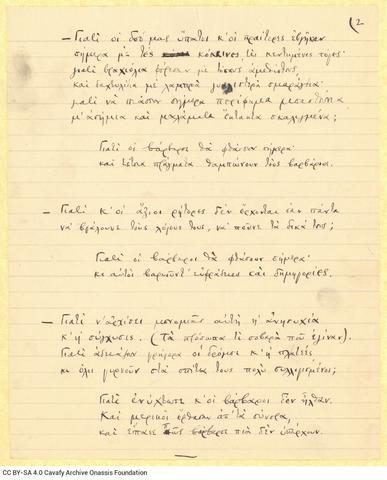 (2
— Γιατί οι δυό μας ύπατοι κ' οι πραίτορες εβγήκαν
σήμερα με τες κόκκινες τες κεντημένες τόγες·
γιατί βραχιόλια φόρεσαν με τόσους αμεθύστους
και δαχτυλίδια με λαμπρά γυαλιστερά σμαράγδια·
γιατί να πιάσουν σήμερα πολύτιμα μπαστούνια
μ' ασήμια και μαλάματα έκτακτα σκαλιγμένα;
Γιατί οι βάρβαροι θα φθάσουν σήμερα·
και τέτοια πράγματα θαμπώνουν τους βαρβάρους.
— Γιατί κ' οι άξιοι ρήτορες δεν έρχονται σαν πάντα
να βγάλουνε τους λόγους τους, να πούνε τα δικά τους;
Γιατί οι βάρβαροι θα φθάσουν σήμερα·
κι αυτοί βαριούντ' ευφράδειες και δημηγορίες.
— Γιατί ν' αρχίσει μονομιάς αυτή η ανησυχία
κ' η σύγχυσις. (Τα πρόσωπα τι σοβαρά που εγίναν).
Γιατί αδειάζουν γρήγορα οι δρόμοι κ' η πλατέες
κι όλοι γυρνούν στα σπίτια τους πολύ συλλογισμένοι;
Γιατί ενύχτωσε κ' οι βάρβαροι δεν ήλθαν.
Και μερικοί έφθασαν απ' τα σύνορα,
και είπανε πως βάρβαροι πια δεν υπάρχουν.
CC BY-SA 4.0 Cavafy Archive Onassis Foundation